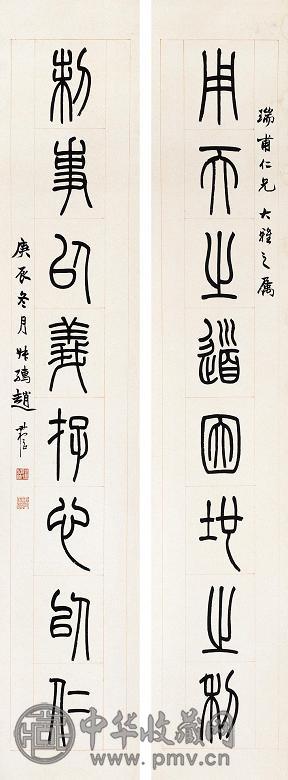 瑞甫仁兄大雅之屬
用天之道因地之利
制事以義存心以仁
庚辰冬月叔孺趙時棡
中华收藏网
www.pmv.cn